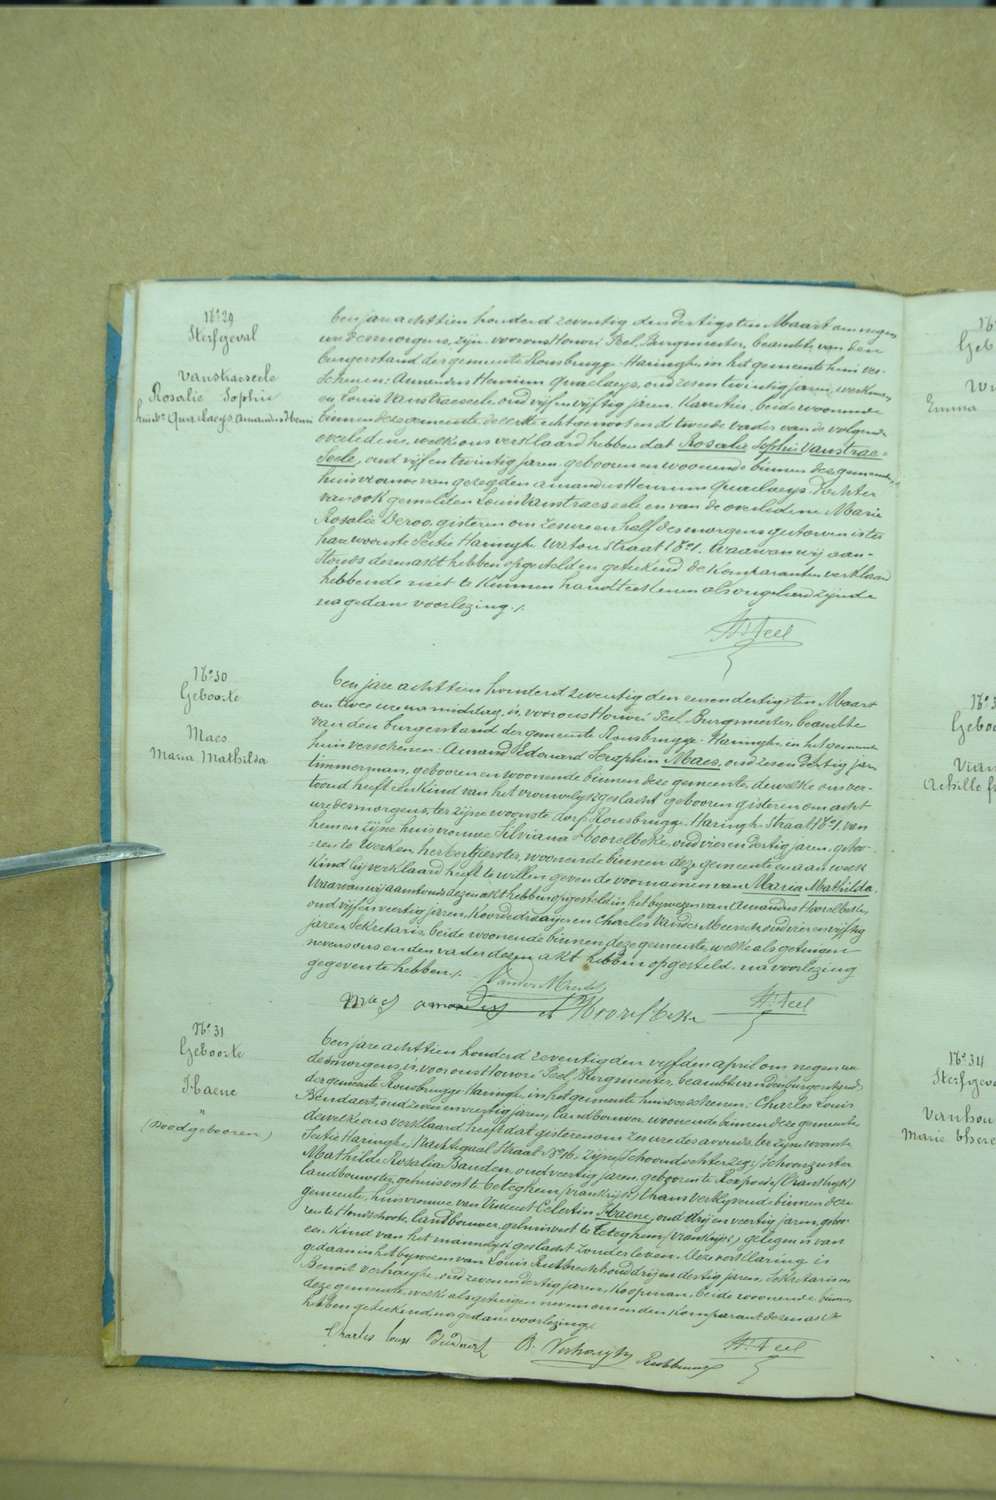 N° 29
Sterfgeval
Vanstraeseele
Rosalie Sophie
huisv. Quaelaeys Amandus Henri
Een jare achttien honderd zeventig den dertigsten Maart om negen
ure des morgens, zijn voor ons Honoré Peel, Burgmeester, beambte van den
burgerstand der gemeente Rousbrugge-Haringhe in het gemeente huis ver-
schenen: Amandus Henricus Quaelaeys, oud zes en twintig jaren, werkman,
en Louis Vanstraeseele, oud vijf en vijftig jaren, beide woonende
binnen deze gemeente de eerste echtgenoot en de tweede vader van de volgende
overledene, welke ons verklaard hebben dat Rosalie Sophie Vanstrae-
seele, oud vijf en twintig jaren, geboren en woonende binnen deze gemeente,
huisvrouwe van gezegden Amandus Henricus Quaelaeys, dochter
van ook gemelden Louis Vanstraeseele en van de overledene Marie
Rosalie Deroo, gisteren om zes ure en half des morgens gestorven is ter
hare woonste Sectie Haringhe straat N° 1. Waarvan wij aan-
stonds dezen akt hebben opgesteld en geteekend de komparanten verklaard
hebbende niet te kunnen handteekenen als ongeleerd zijnde
na gedane voorlezing.
H. Peel
N° 30
Geboorte
Maes
Maria Mathilda
Een jare achttien honderd zeventig den een en dertigsten Maart
om twee ure na middag, is voor ons Honoré Peel, Burgmeester, beambte
van den burgerstand der gemeente Rousbrugge-Haringhe, in het gemeente
huis verschenen: Amand Edouard Seraphin Maes, oud zes en dertig jaren,
timmerman, geboren en woonende binnen deze gemeente, dewelke ons ver-
toond heeft een kind van het vrouwelijk geslacht geboren gisteren om acht
ure des morgens, ter zijne woonste dorp Rousbrugge-Haringhe Straat N° 1. van
hem en zijne huisvrouwe Silviana Hoorelbeke, oud vier en dertig jaren, gebo-
ren te Werken, herbergierster, woonende binnen deze gemeente en aan welk
kind hij verklaard heeft te willen geven de voornamen van Maria Mathilda.
Waarvan wij aanstonds dezen akt hebben opgesteld in het bijwezen van Amandus Hoorelbeke,
oud vijf en veertig jaren, Koordedraayer en Charles Vander Meersch oud vier en vijftig
jaren Sekretaris, beide woonende binnen deze gemeente, welke als getuigen
nevens ons en den vader dezen akt hebben opgesteld. na voorlezing
gegeven te hebben.
Vander Meersch
Maes amand H. Hoorelbeke H. Peel
N° 31
Geboorte
Haene
"
(Doodgeboren)
Een jare achttien honderd zeventig den vijfden april om negen ure
des morgens, is voor ons Honoré Peel, Burgmeester, beambte van den burgerstand
der gemeente Rousbrugge-Haringhe, in het gemeente huis verschenen: Charles Louis
Beudaert, oud zeven en veertig jaren, landbouwer, woonende binnen deze gemeente,
dewelke ons verklaard heeft dat gisteren om zes ure des avonds, ter zijne woonste
Sectie Haringhe, Straat N° 16. zijne Schoondochter zegge Schoonzuster
Mathilde Rosalia Bauden, oud veertig jaren, geboren te Rexpoëde (Frankrijk)
landbouwster, gehuisvest te Teteghem (frankrijk) thans verblyvende binnen deze
gemeente, huisvrouwe van Vincent Celestin Haene, oud drij en veertig jaren, gebo-
ren te Hondschoote, landbouwer, gehuisvest te Teteghem (frankrijk), gelegen is van
een kind van het mannelijk geslacht zonder leven. Deze verklaring is
gedaan in het bijwezen van Louis oud drij en dertig jaren, Sekretaris en
Benoit Verhaeghe, oud zeven en dertig jaren, koopman, beide woonende binnen
deze gemeente, welk als getuigen nevens ons en den komparant dezen akt
hebben geteekend na gedane voorlezing.
Charles Louis Beudaert B. Verhaeghe H. Peel
N° 34
Sterfgeval